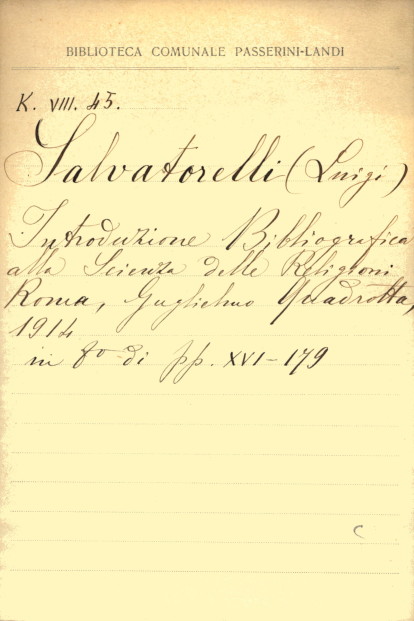 BIBLIOTECA COMUNALE PASSERINI-LANDI
K. VIII. 45.
Salvatorelli (Luigi)
Introduzione Bibliografica
alla Scienza delle Religioni
Roma, Guglielmo Quadrotta,
1914
in 8º di pp. XVI-179
C